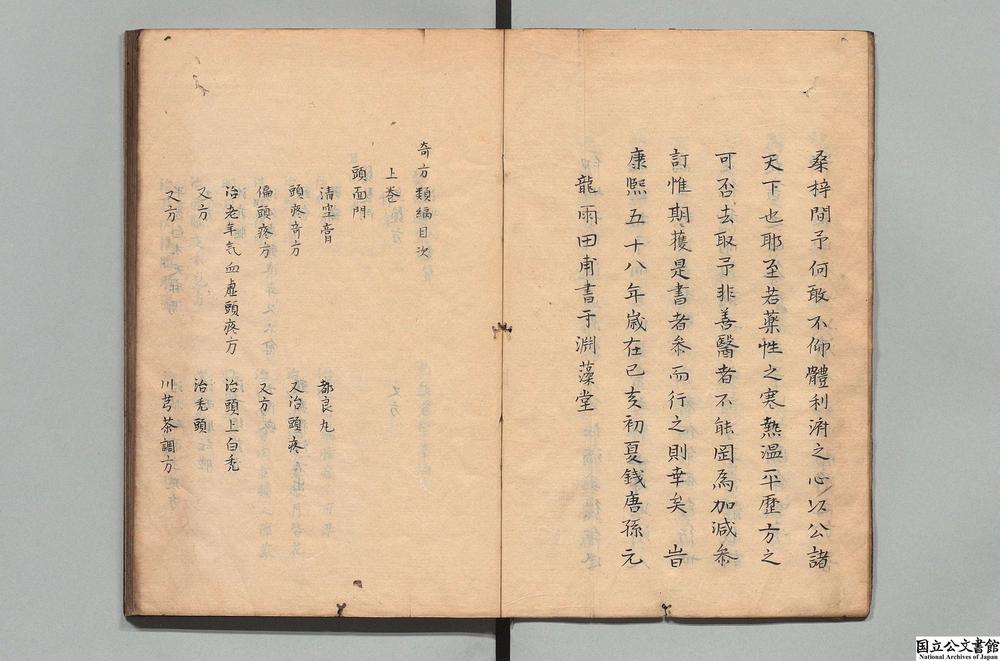 桑梓間予何敢不仰體利濟之心以公諸
天下也耶至若藥性之寒熱溫平歷方之
可否去取予非善醫者不能罔為加減叅
訂惟期獲是書者叅而行之則幸矣 旹
康熙五十八年歲在己亥初夏錢唐孫元
龍雨田甫書于淵藻堂
奇方類編目次
上卷
頭面門
清空膏 都良丸
頭疼奇方 又治頭疼
偏頭疼方 又方
治老年气血虛頭疼方 治頭上白禿
又方 治禿頭
又方 川芎茶調方
国立公文書館
National Archives of Japan